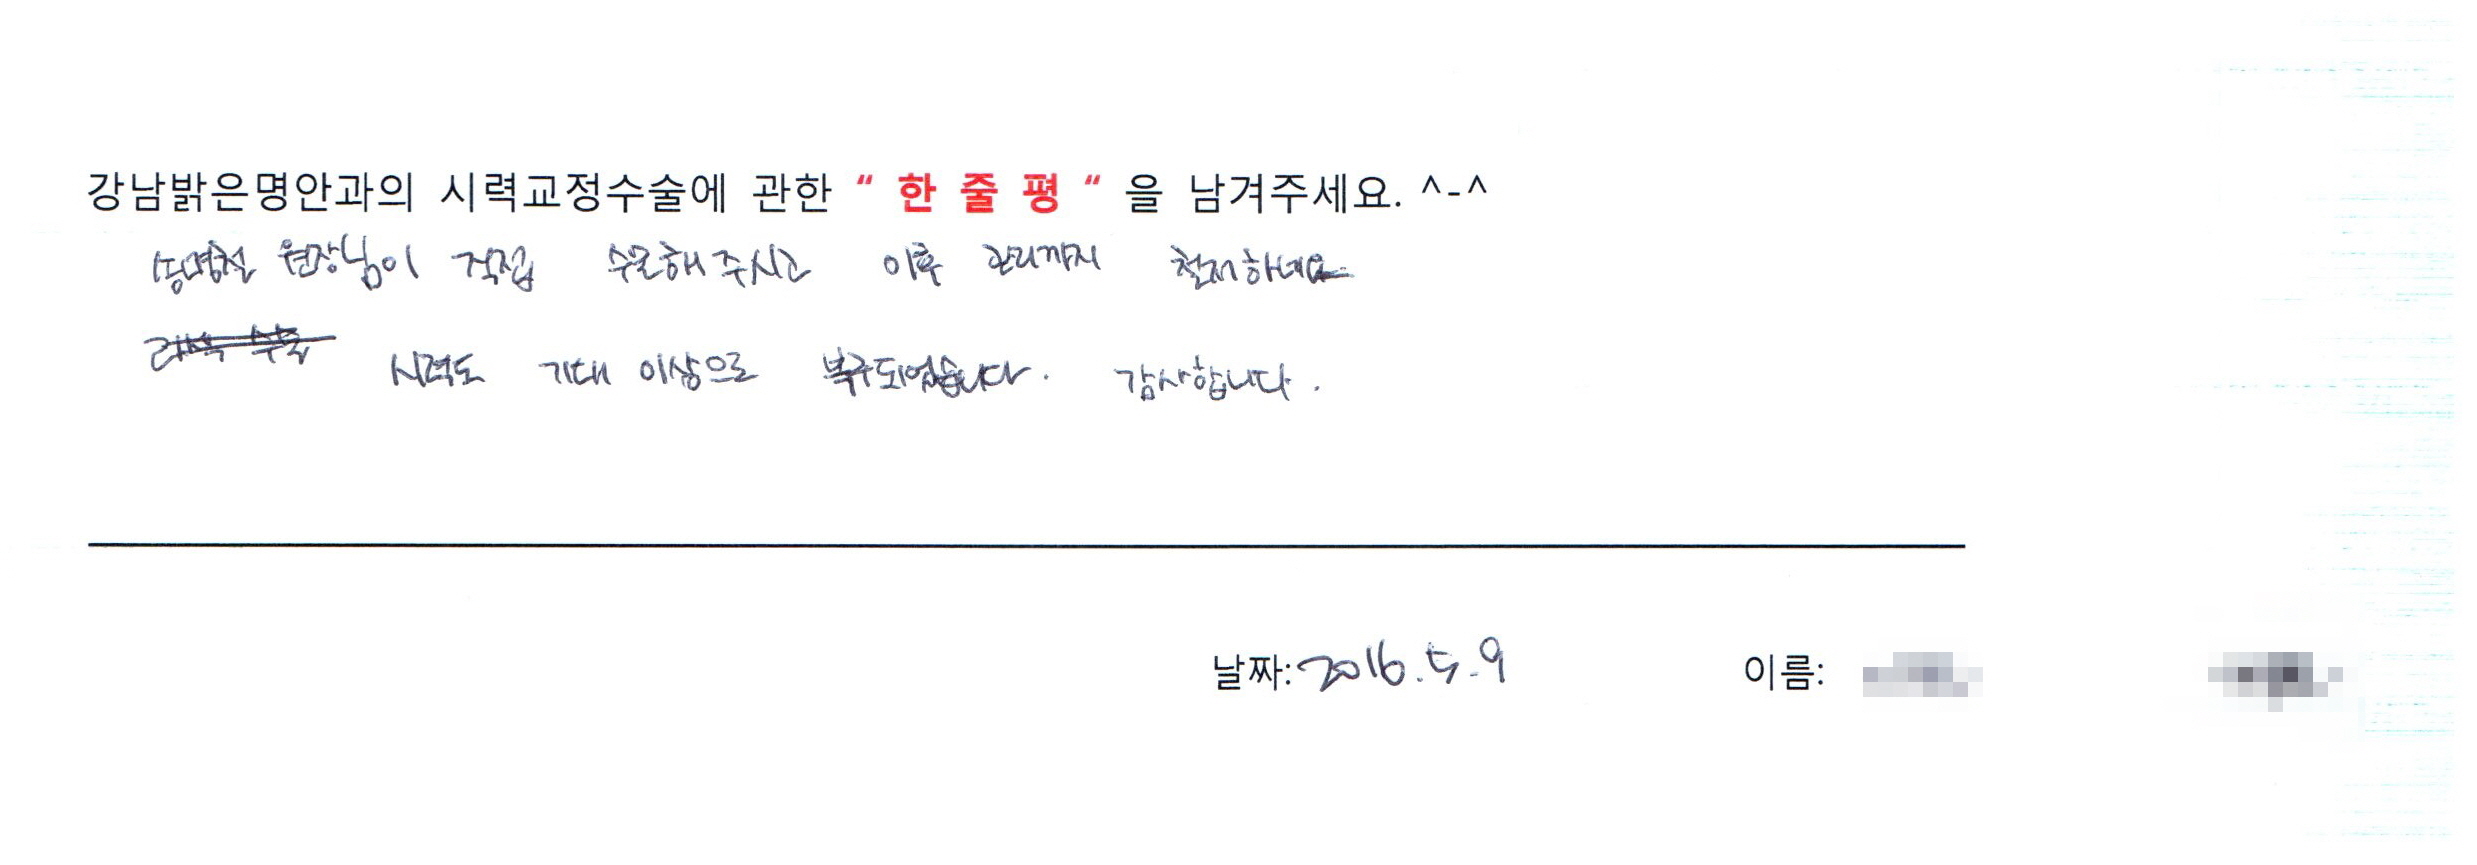 강남밝은명안과의 시력교정수술에 관한 “ 한 줄 평 “ 을 남겨주세요. ^-^
송명철 원장님이 직접 수술해주시고 이후 관리까지 철저하네요
시력도 기대 이상으로 복구되었습니다. 감사합니다.
날짜: 2016.5.9 이름: